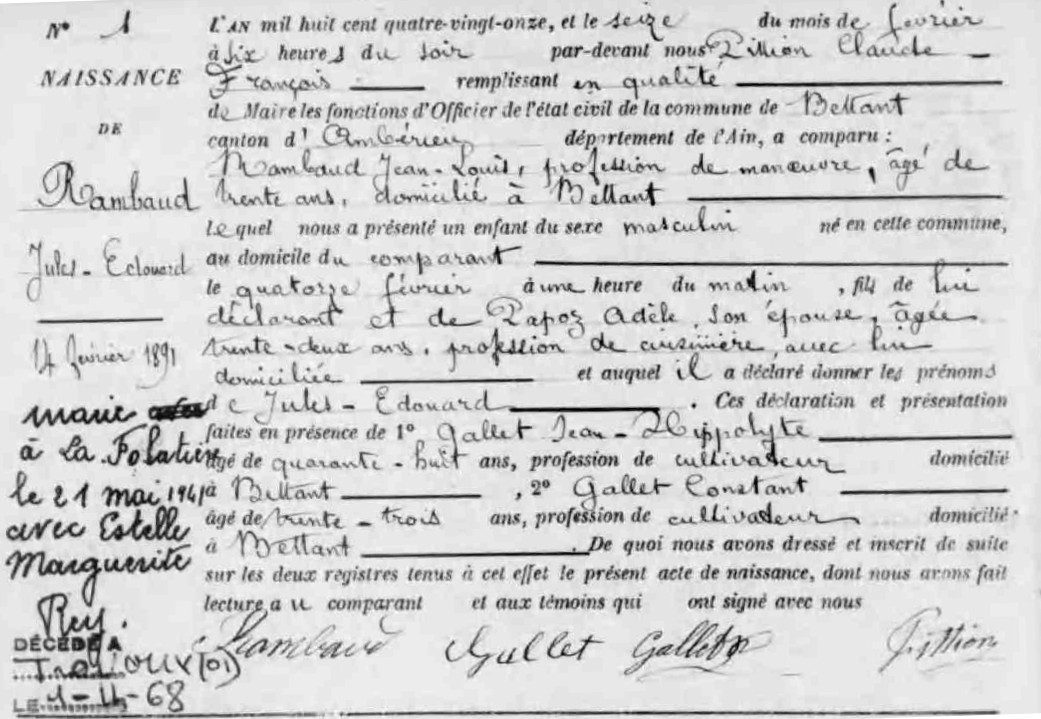 N° 1
NAISSANCE
DE
Rambaud
Jules-Edouard
14 février 1891
marié
à La Folatière
le 21 mai 1941
avec Estelle
Marguerite
Rey.
DÉCÉDÉ A
(01)
LE 1-4-68
L'AN mil huit cent quatre-vingt-onze, et le seize du mois de février
à six heures du soir par-devant nous Pittion Claude
Français remplissant en qualité
de Maire les fonctions d'Officier de l'état civil de la commune de Bettant
canton d'Ambérieu département de l'Ain, a comparu :
Rambaud Jean-Louis, profession de manœuvre, âgé de
trente ans, domicilié à Bettant
lequel nous a présenté un enfant du sexe masculin né en cette commune,
au domicile du comparant
le quatorze février à une heure du matin, fils de lui
déclarant et de Papoz Adèle, son épouse, âgée
trente-deux ans, profession de cuisinière, avec lui
domiciliée et auquel il a déclaré donner les prénoms
de Jules-Edouard. Ces déclaration et présentation
faites en présence de 1° Gallet Jean-Hippolyte
âgé de quarante-huit ans, profession de cultivateur domicilié
à Bettant, 2° Gallet Constant
âgé de trente-trois ans, profession de cultivateur domicilié
à Bettant. De quoi nous avons dressé et inscrit de suite
sur les deux registres tenus à cet effet le présent acte de naissance, dont nous avons fait
lecture au comparant et aux témoins qui ont signé avec nous
Rambaud Gallet Gallet Pittion